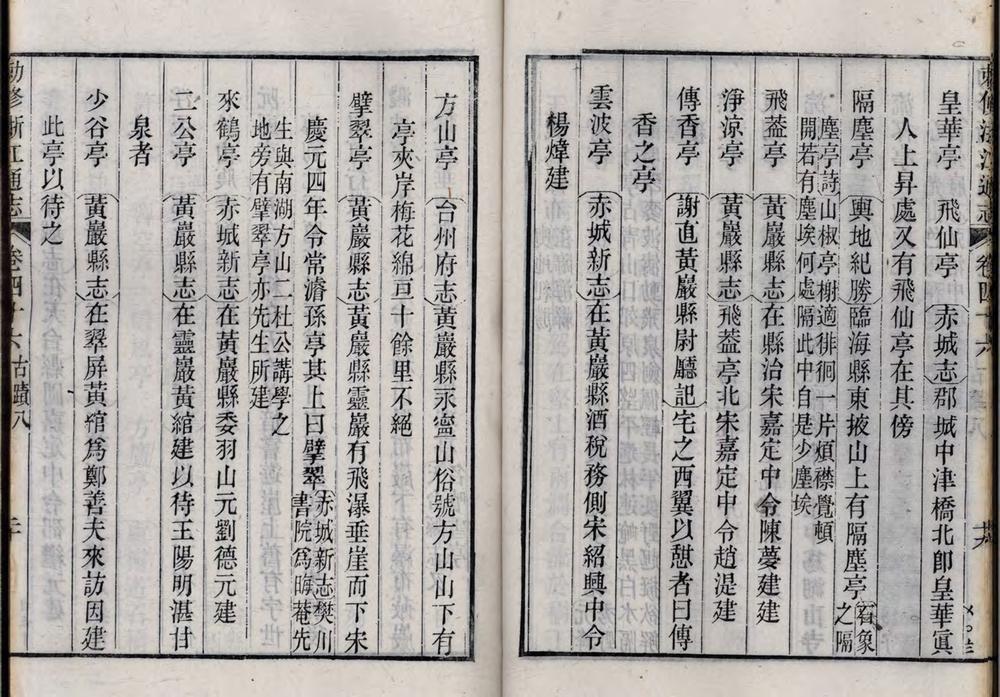 皇華亭 飛仙亭 赤城志郡城中津橋北即皇華寘
人上昇處又有飛仙亭在其傍
隔塵亭 輿地紀勝臨海縣東掖山上有隔塵亭 石象之隔
塵亭詩山椒亭榭適徘徊一片煩襟覺頓
開若有塵埃何處隔此中自是少塵埃
飛蓋亭 黃巖縣志在縣治宋嘉定中令陳蔓建建
淨涼亭 黃巖縣志飛蓋亭北宋嘉定中令趙湜建
傳香亭 謝直黃巖縣尉廳記宅之西翼以憇者曰傳
香之亭
雲波亭 赤城新志在黃巖縣酒稅務側宋紹興中令
楊煒建
勅修浙江通志 卷四十六 古蹟八
方山亭 台州府志黃巖縣永寧山俗號方山山下有
亭夾岸梅花綿亘十餘里不絕
擘翠亭 黃巖縣志黃巖縣靈巖有飛瀑垂崖而下宋
慶元四年令常濬孫亭其上曰擘翠 赤城新志樊川書院爲晦菴先
生與南湖方山二杜公講學之
地旁有擘翠亭亦先生所建
來鶴亭 赤城新志在黃巖縣委羽山元劉德元建
二公亭 黃巖縣志在靈巖黃綰建以待王陽明湛甘
泉者
少谷亭 黃巖縣志在翠屏黃綰爲鄭善夫來訪因建
此亭以待之